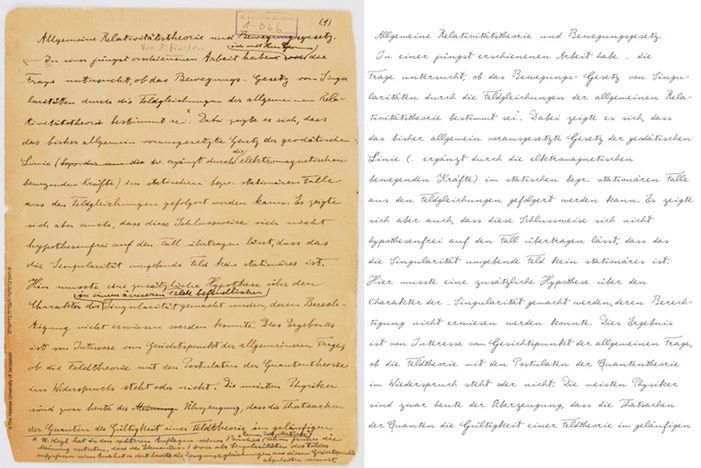 (1)
1-066
Allgemeine Relativitätstheorie und Bewegungsgesetz.
In einer jüngst erschienenen Arbeit habe die
Frage untersucht, ob das Bewegungs-Gesetz von Singu-
laritäten durch die Feldgleichungen der allgemeinen Rela-
tivitätstheorie bestimmt sei. Dabei zeigte es sich, dass
das bisher allgemein vorausgesetzte Gesetz der geodätischen
Linie ( ergänzt durch die elektromagnetischen
bewegenden Kräfte) im statischen bezw. stationären Falle
aus den Feldgleichungen gefolgert werden kann. Es zeigte
sich aber auch, dass diese Schlussweise sich nicht
hypothesenfrei auf den Fall übertragen lässt, dass das
die Singularität umgebende Feld kein stationäres ist.
Hier musste eine zusätzliche Hypothese über den
in einem äusseren Felde befindlichen
Charakter der Singularität gemacht werden, deren Berech-
tigung nicht erwiesen werden konnte. Dies Ergebnis
ist von Interesse vom Gesichtspunkt der allgemeineren Frage,
ob die Feldtheorie mit den Postulaten der Quantentheorie
im Widerspruch steht oder nicht. Die meisten Physiker
sind zwar heute der Überzeugung, dass die Thatsachen
der Quanten die Gültigkeit einer Feldtheorie im geläufigen
© The Hebrew University of Jerusalem
Allgemeine Relativitätstheorie und Bewegungsgesetz.
In einer jüngst erschienenen Arbeit habe - die
Frage untersucht, ob das Bewegungs-Gesetz von Singu-
laritäten durch die Feldgleichungen der allgemeinen Rela-
tivitätstheorie bestimmt sei. Dabei zeigte es sich, dass
das bisher allgemein vorausgesetzte Gesetz der geodätischen
Linie (. ergänzt durch die elktromagnetischen
bewegenden Kräfte) im statischen begr. stationären Falle
aus den Feldgleichungen gefolgert werden kann. Es zeigte
sich aber auch, dass diese Schlussweise sich nicht
hypothesenfrei auf den Fall übertragen lässt, dass das
die Singularität umgebende Feld kein stationäres ist.
Hier musste eine zusätzliche Hypothese über den
Charakter der - Singularität gemacht werden, deren Berech-
tigung nicht erwiesen werden konnte. Dies Ergebnis
ist von Interesse vom Gesichtspunkt der allgemeinen Frage,
ob die Feldtheorie mit den Postulaten der Quantentheorie
im Wiederspruch steht oder nicht. Die meisten Physiker
sind zwar heute der Überzeugung, dass die Thatsachen
der Quanten die Gültigkeit einer Feldtheorie im geläufigen